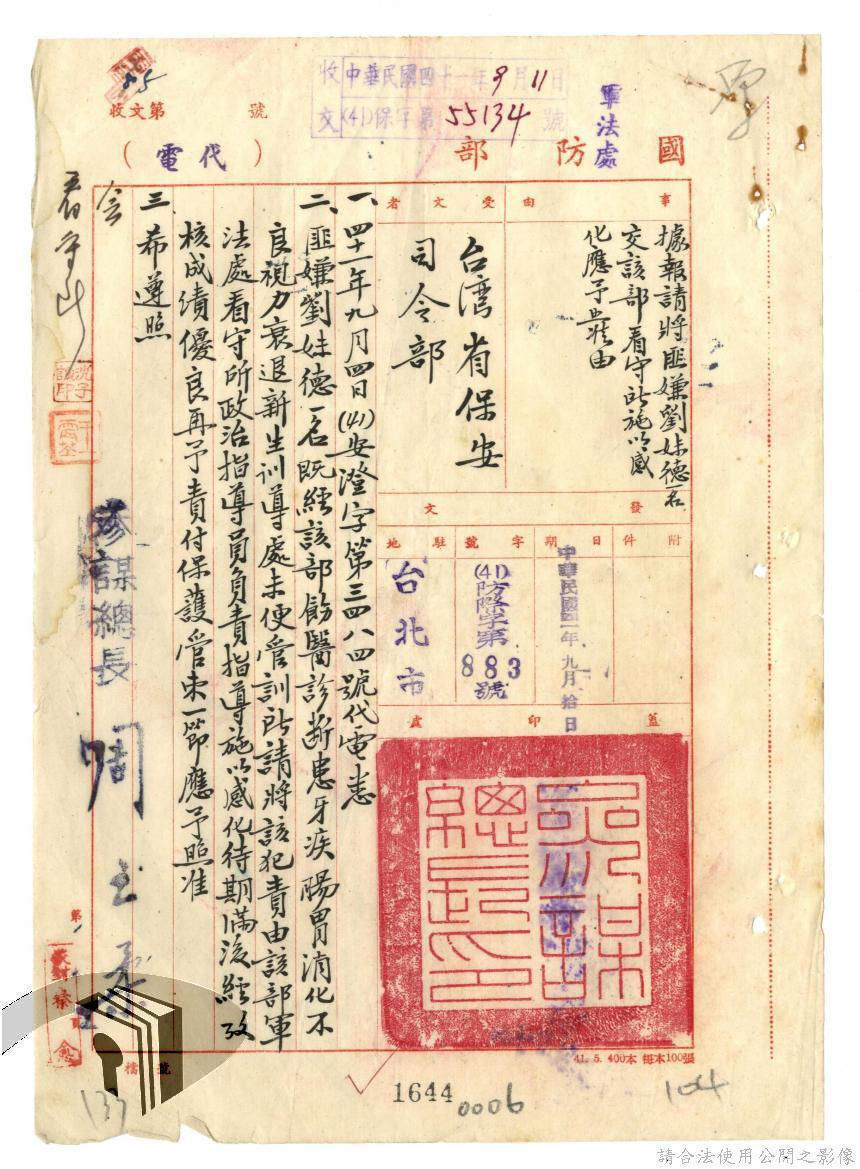 收中華民國四十一年9月11日
交(41)保字第55134號
85
收文第 號
軍法處
國防部
(代電)
事由
據報請將匪嫌劉妹德一名
交該部看守所施以感
化應予照准由
受文者
台灣省保安
司令部
發文
附件
日期
中華民國四十一年九月拾日
字號
(41)防隆字第
883號
駐地
台北市
蓋印處
參謀總長印
一、四十一年九月四日(41)安澄字第三四八四號代電悉
二、匪嫌劉妹德一名既經該部飭醫診断患牙疾腸胃消化不
良視力衰退新生訓導處未便管訓所請將該犯責由該部軍
法處看守所政治指導員負責指導施以感化待期滿後經考
核成績優良再予責付保護管束一節應予照准
三希遵照
令
看守所
參謀總長周至柔
第
檔號
41.5.400本 每本100張
1644
0006
104
137
請合法使用公開之影像